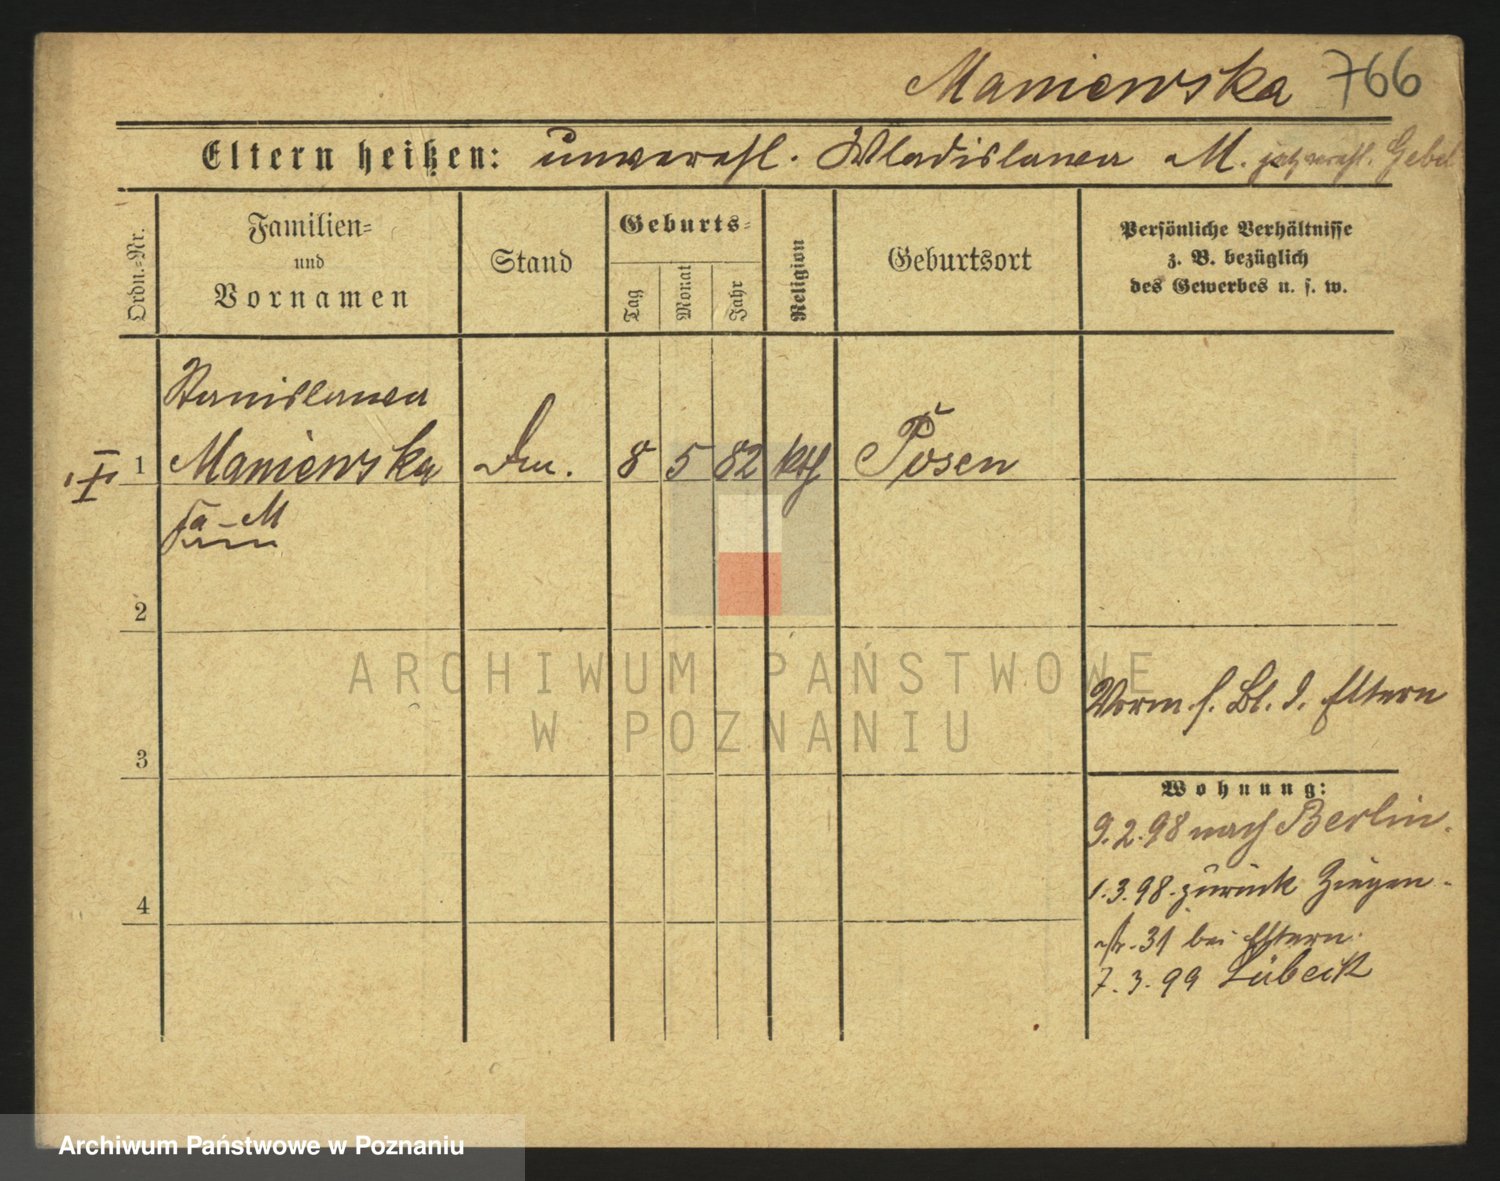 Maniewska 766
Eltern heißen: unverehl. Wladislawa M. jetz verehl. Gebel
Ordn.=Nr.
Familien=
und
Vornamen
Stand
Geburts=
Tag
Monat
Jahr
Religion
Geburtsort
Persönliche Verhältnisse
z. B. bezüglich
des Gewerbes u. s. w.
Stanislawa
I 1 Maniewska 8 5 82 kth Posen
2
3
4
Vorm. s. Bl. d. Eltern
Wohnung:
9.2.98 nach Berlin.
1.3.98. zurück Ziegen-
str. 31 bei Eltern.
7.3.99 Lübeck
ARCHIWUM PAŃSTWOWE
W POZNANIU
Archiwum Państwowe w Poznaniu